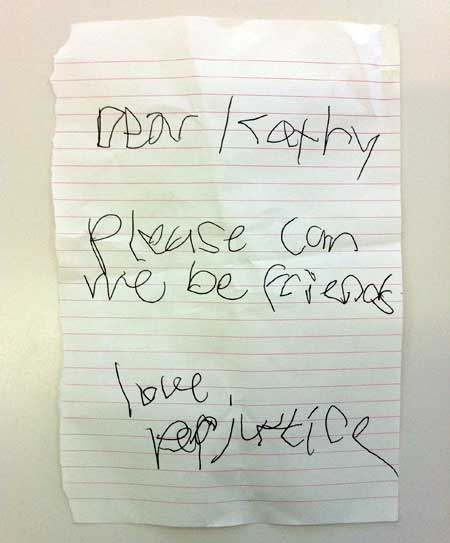 Dear Kathy
please can
we be friends
love,
justice